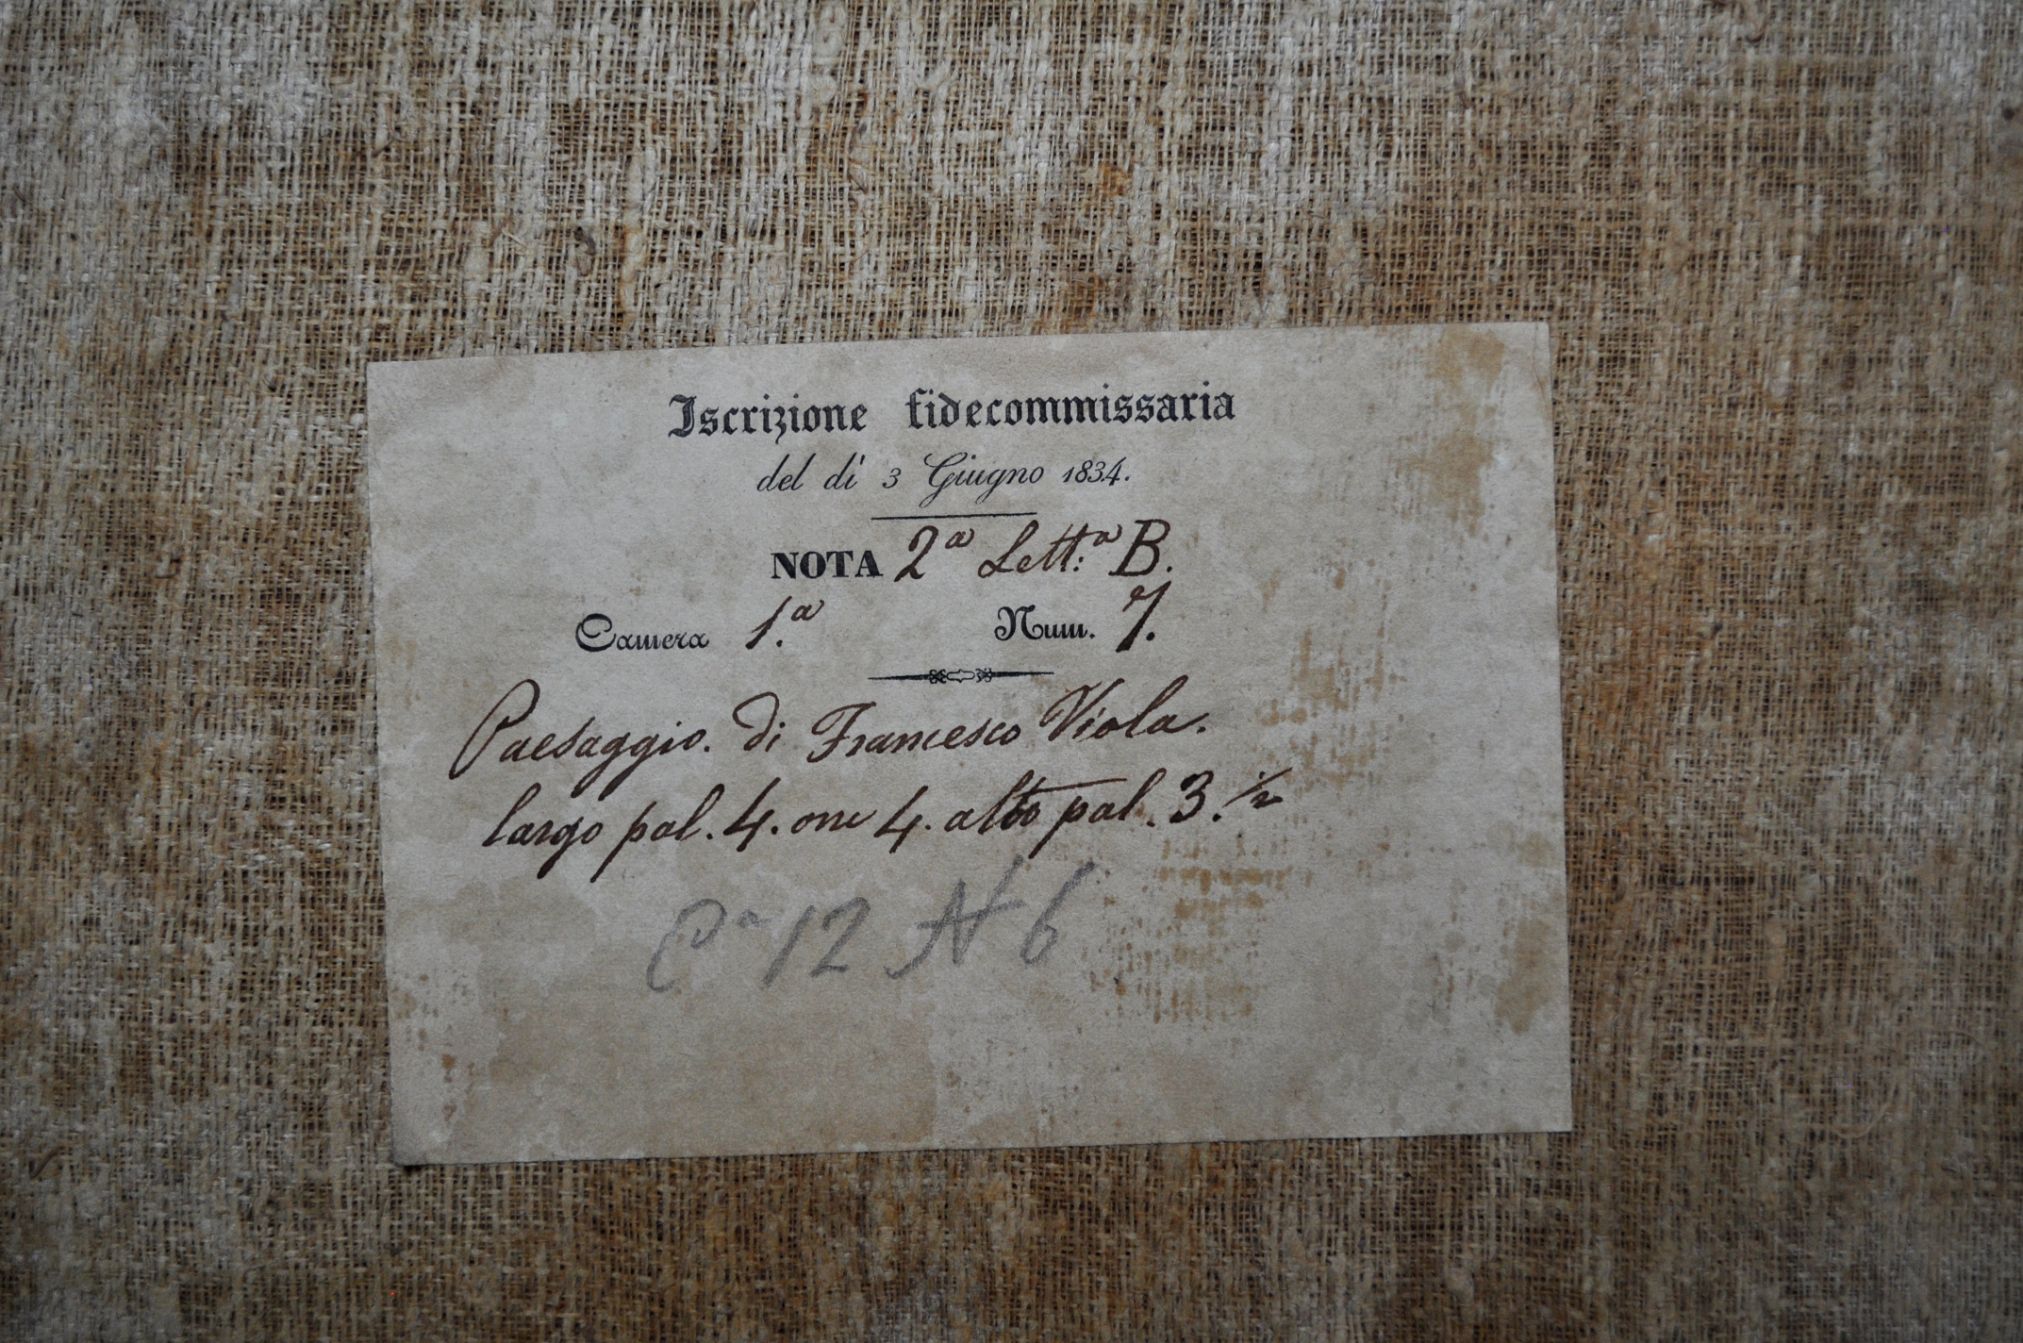 Iscrizione fidecommissaria
del dì 3 Giugno 1834.
NOTA 2ª Lett:ª B.
Camera 1.ª Num. 7.
Paesaggio. di Francesco Viola.
largo pal. 4. on: 4. alto pal. 3. ½
Cª 12 N 6